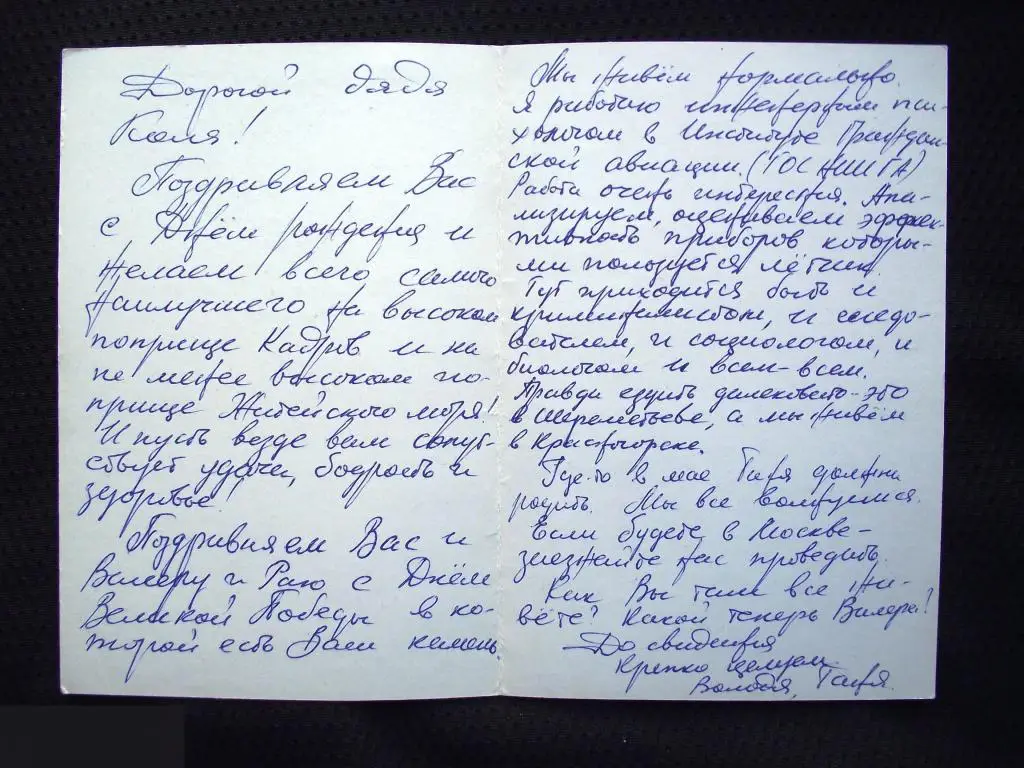 Дорогой дядя
Коля!
Поздравляем Вас
с Днём рождения и
желаем всего самого
наилучшего на высоком
поприще Кадров и на
не менее высоком по-
прище Житейского моря!
И пусть везде вам сопут-
ствует удача, бодрость и
здоровье!
Поздравляем Вас и
Валеру и Раю с Днём
Великой Победы в ко-
торой есть Ваш камень
Мы живём нормально.
Я работаю инженером пси-
хологом в Институте Граждан-
ской авиации. (ГОС НИИ ГА)
Работа очень интересная. Ана-
лизируем, оцениваем эффек-
тивность приборов которы-
ми пользуется лётчик.
Тут приходится быть и
криминалистом, и следо-
вателем, и социологом, и
биологом и всем-всем.
Правда ездить далековато-это
в Шереметьево, а мы живём
в Красногорске.
Где-то в мае Таня должна
родить. Мы все волнуемся.
Если будете в Москве-
заезжайте нас проведать.
Как Вы там все жи-
вёте? Какой теперь Валера?
До свидания
Крепко целуем
Володя, Таня.